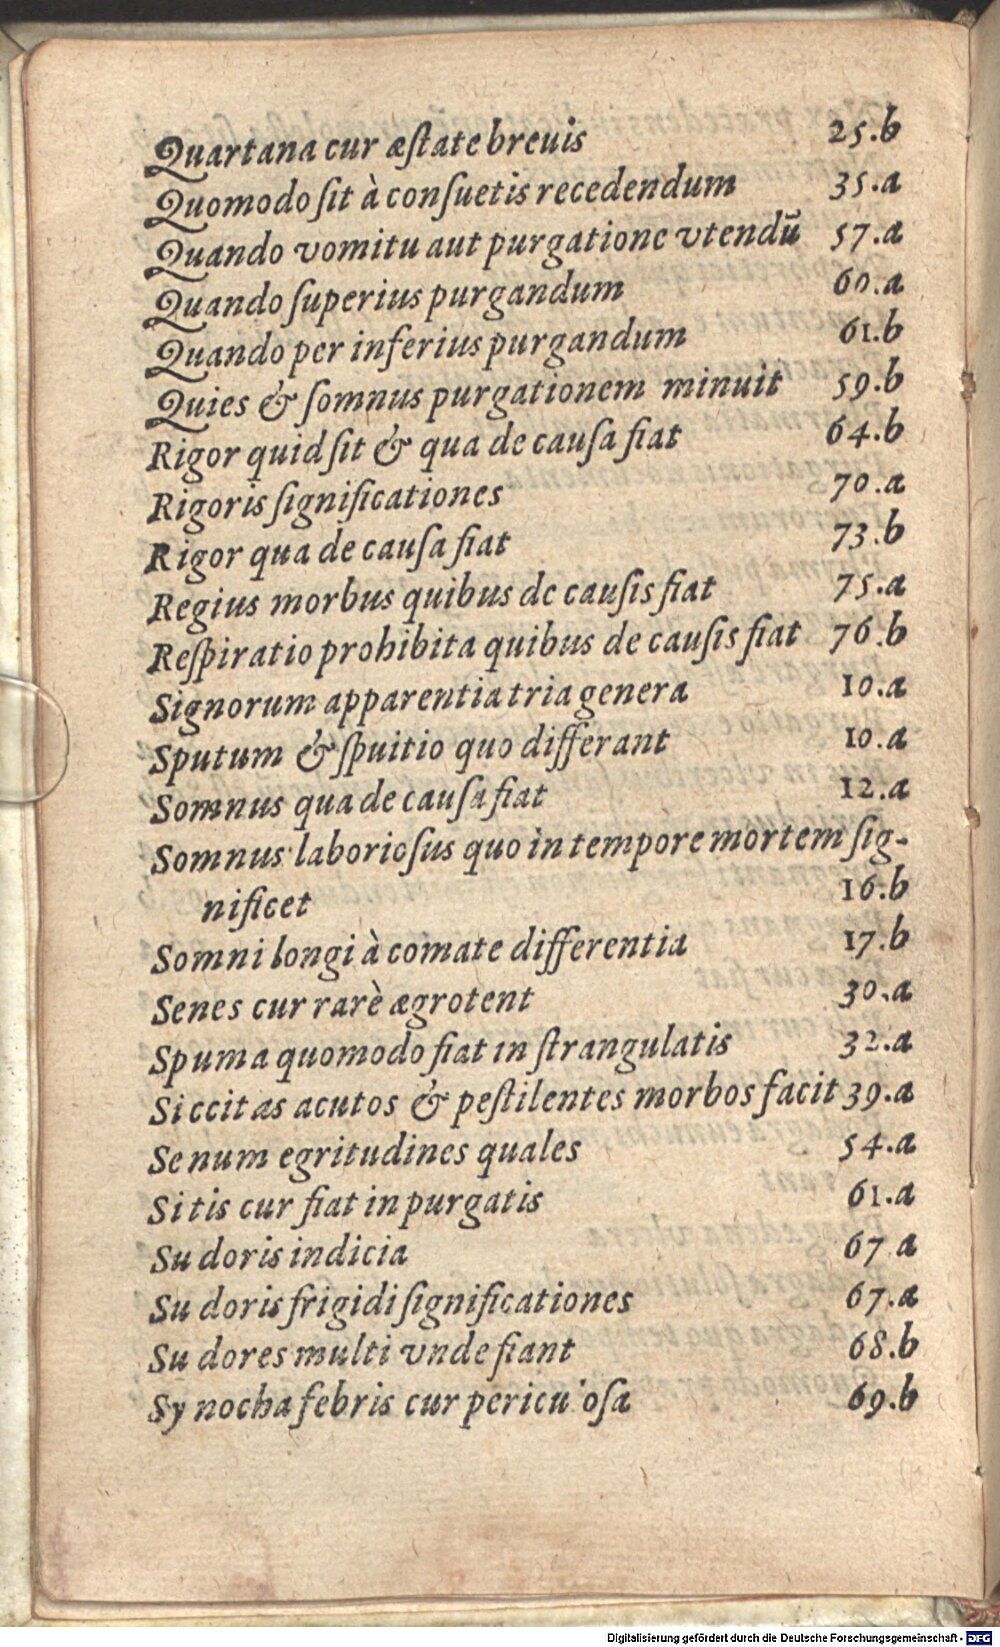 Quartana cur æſtate breuis 25.b
Quomodo ſit à conſuetis recedendum 35.a
Quando vomitu aut purgatione vtendū 57.a
Quando ſuperius purgandum 60.a
Quando per inferius purgandum 61.b
Quies & ſomnus purgationem minuit 59.b
Rigor quid ſit & qua de cauſa fiat 64.b
Rigoris ſignificationes 70.a
Rigor qua de cauſa fiat 73.b
Regius morbus quibus de cauſis fiat 75.a
Reſpiratio prohibita quibus de cauſis fiat 76.b
Signorum apparentia tria genera 10.a
Sputum & ſpuitio quo differant 10.a
Somnus qua de cauſa fiat 12.a
Somnus laborioſus quo in tempore mortem ſig-
nificet 16.b
Somni longi à comate differentia 17.b
Senes cur rarè ægrotent 30.a
Spuma quomodo fiat in ſtrangulatis 32.a
Siccitas acutos & peſtilentes morbos facit 39.a
Senum egritudines quales 54.a
Sitis cur fiat in purgatis 61.a
Sudoris indicia 67 a
Sudoris frigidi ſignificationes 67.a
Sudores multi vnde fiant 68.b
Synocha febris cur pericu'oſa 69.b
Digitalisierung gefördert durch die Deutsche Forschungsgemeinschaft - DFG